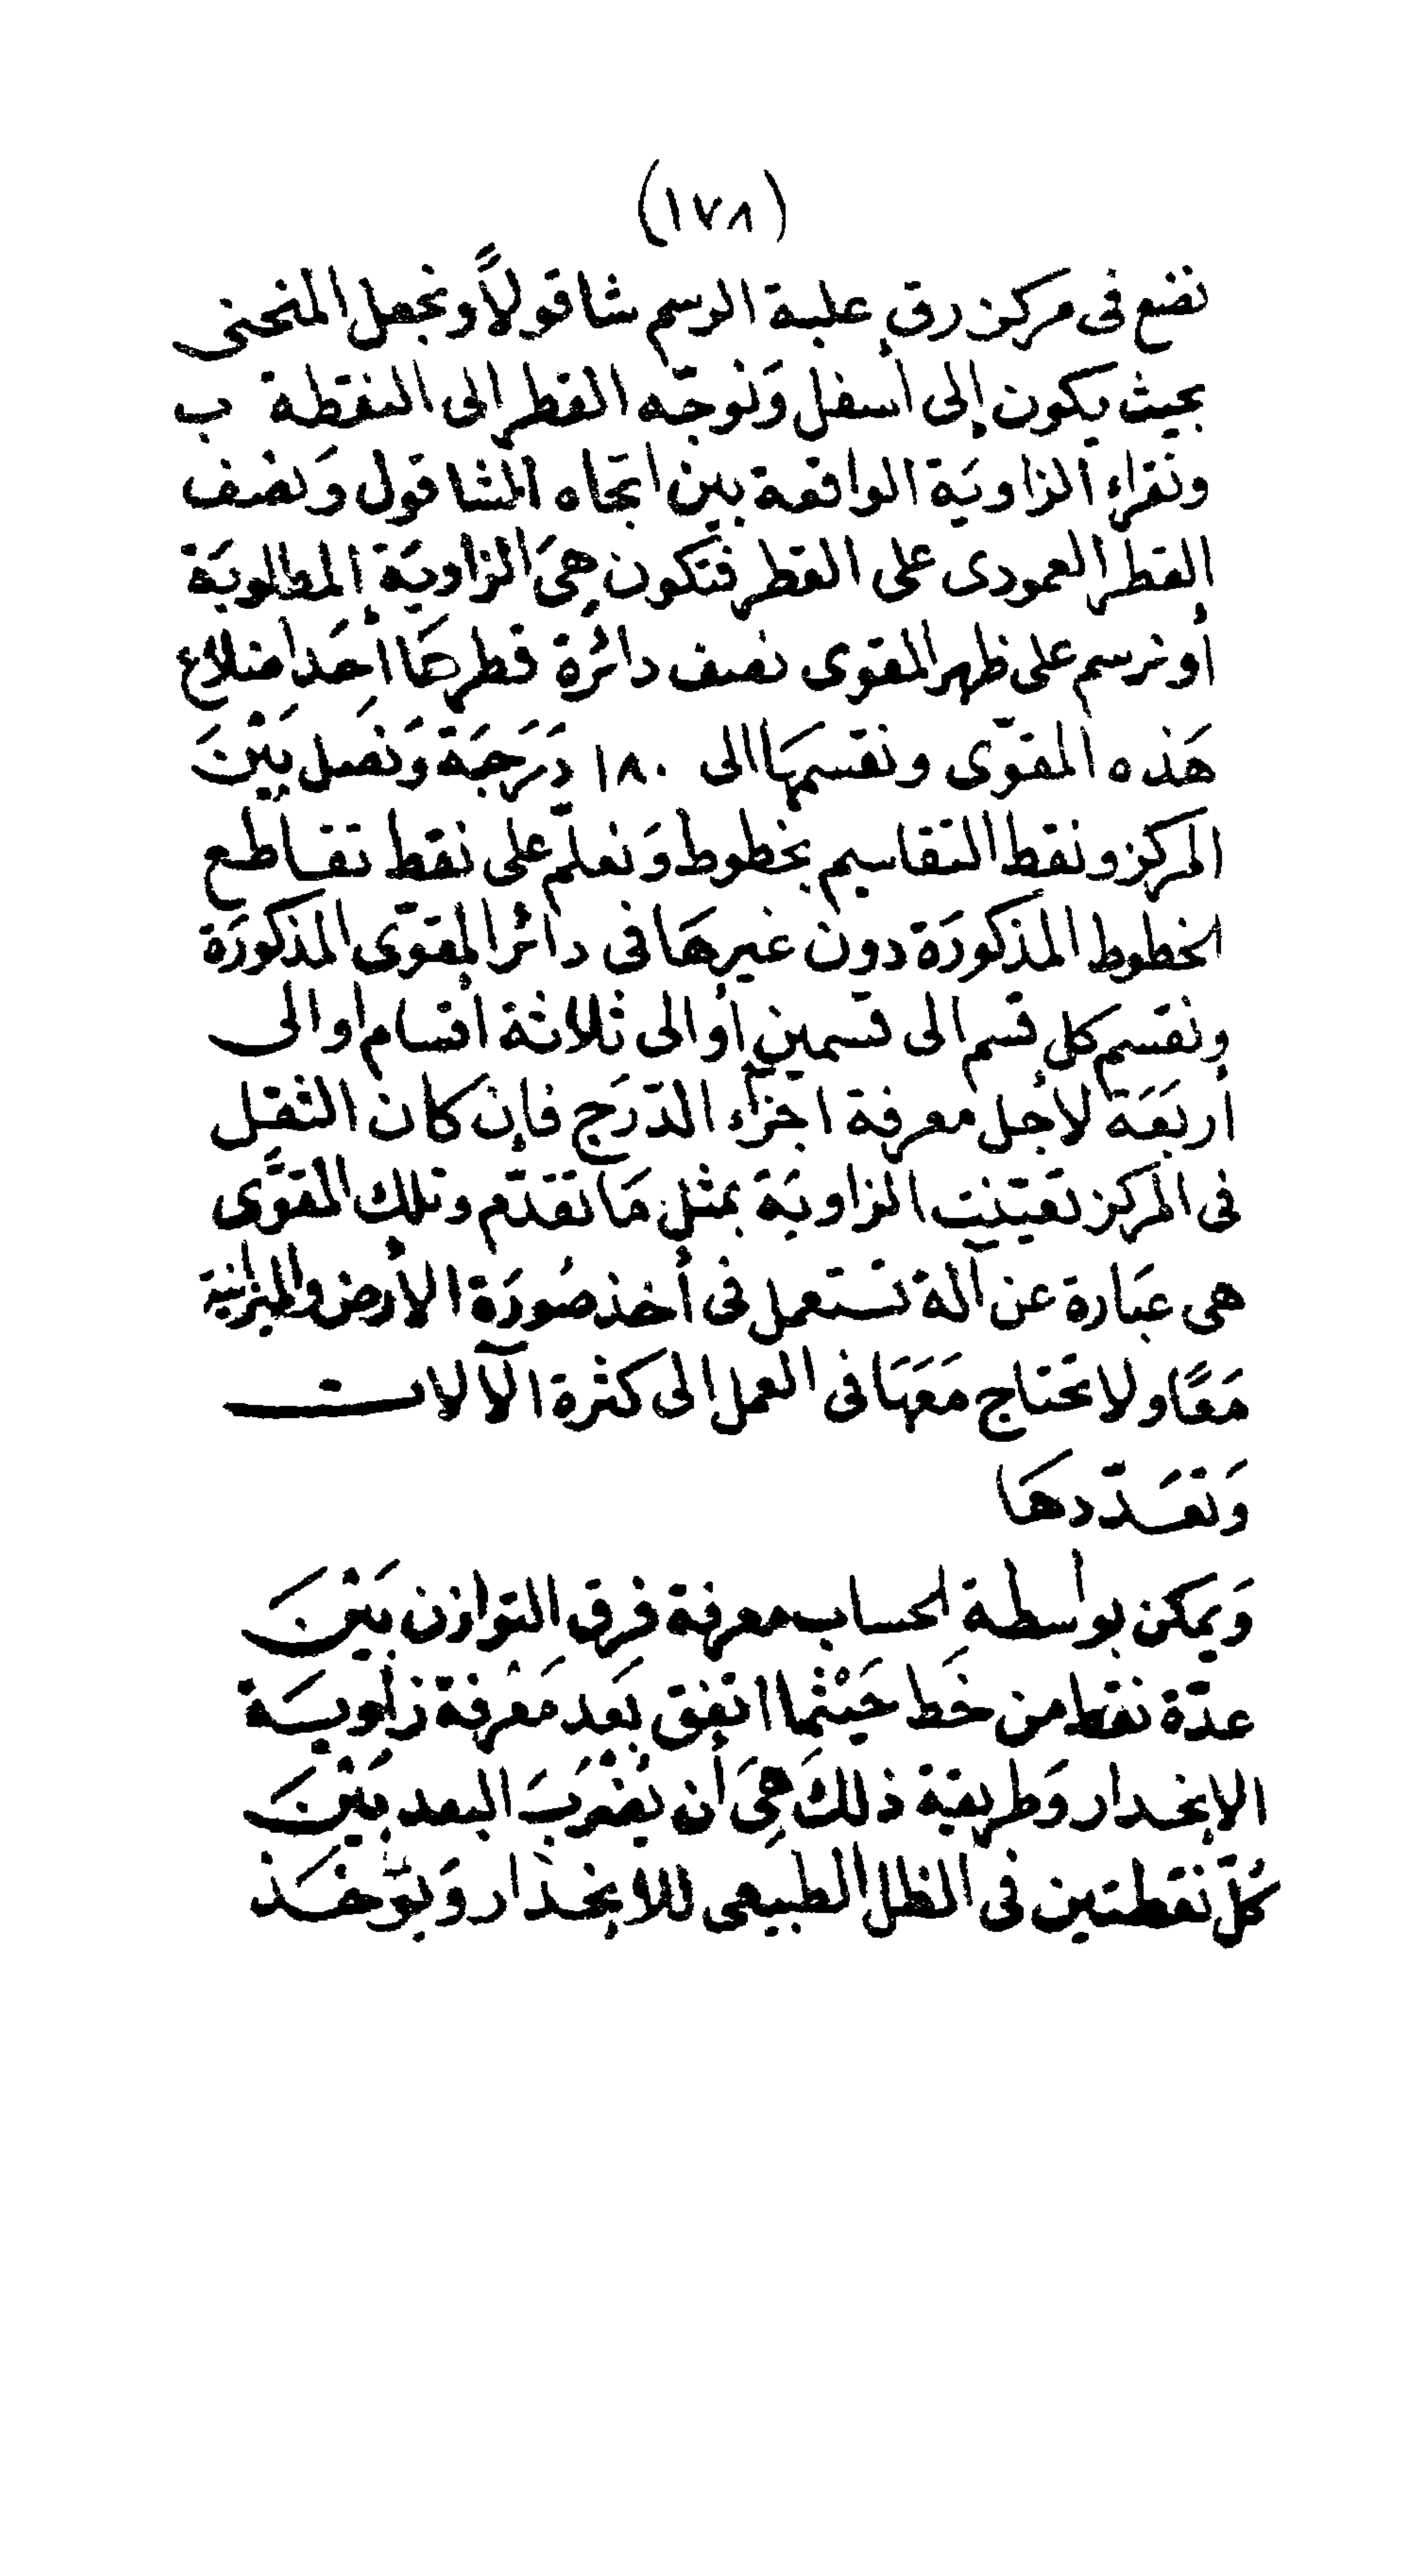 (١٧٨)
نضع فى مركز رق علبة الرسم شاقولاً ونجعل المنحنى
بحيث يكون إلى أسفل وَنوجّه القطر الى النقطة ب
ونقراء الزاويَة الواقعة بين اتجاه الشاقول وَنصف
القطر العمودى على القطر فتكون هىَ الزاويَة المطلوبَة
أو نرسم على ظهر المقوى نصف دائرة قطرهَا أحَد اضلاع
هَذه المقوّى ونقسمهَا الى ١٨٠ دَرَجَة وَنصل بَيْنَ
المركز ونقط التقاسيم بخطوط وَنعلّم على نقط تقاطع
الخطوط المذكورَة دون غيرهَا فى دائر المقوّى المذكورَة
ونقسم كل قسم الى قسمين أو الى ثلاثة أقسام او الى
أربعَة لأجل معرفة اجزاء الدّرَج فإن كان الثقل
فى المركز تعيّنت الزاويَة بمثل مَا تقدّم وتلك المقوَّى
هى عبَارة عن آلة تستعمل فى أخذ صُورَة الأرض والميزانية
مَعًا ولا تحتاج مَعَهَا فى العمل الى كثرة الآلات
وَتعَدّدهَا
وَيمكن بواسطة الحساب معرفة فرق التوازن بَيْنَ
عدّة نقط من خَط حَيْثما اتفق بَعد مَعْرفة زاويَة
الإنحدار وَطريقة ذلكَ هىَ أن يُضْرَبَ البعد بَيْنَ
كُلّ نقطتين فى الظل الطبيعى للإنحدار وَيؤخَذ